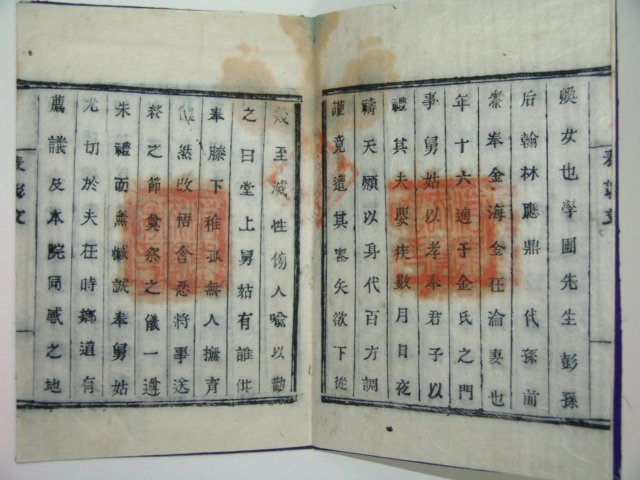 女也學圃先生彭孫
后翰林應鼎 代孫前
叅奉金海金在淪妻也
年十六適于金氏之門
事舅姑以孝奉君子以
禮其夫嬰疾數月日夜
禱天願以身代百方調
護竟遭其喪矣欲下從
幾至滅性傍人喩以勸
之曰堂上舅姑有誰供
奉膝下稚孤無人撫育
然改悟會悉將事送
終之節奠祭之儀一遵
朱禮而無憾誠奉舅姑
尤切於夫在時鄕道有
薦議及本院同感之地